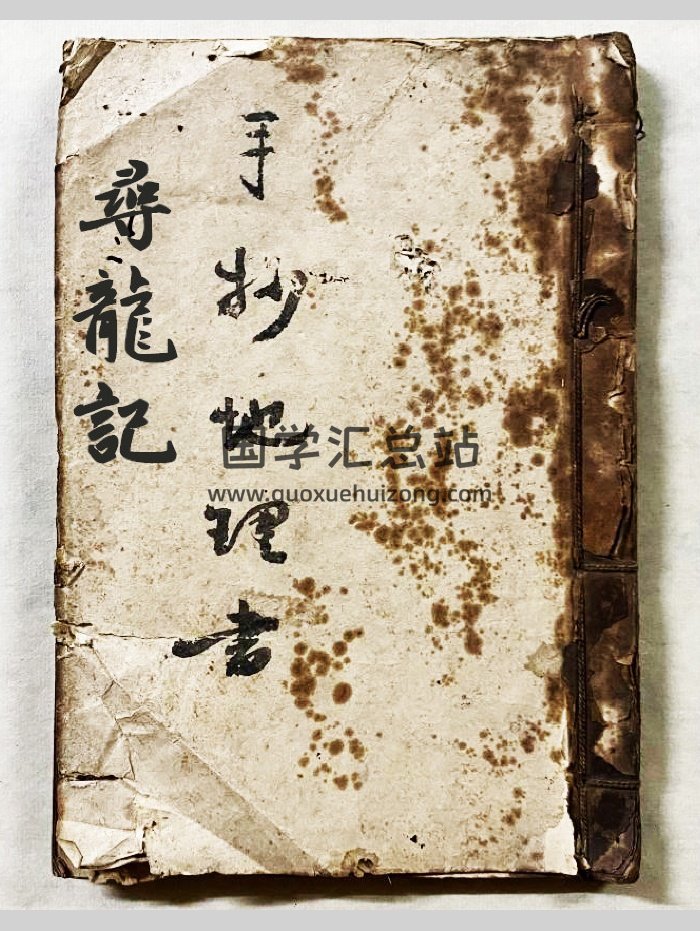 手抄地理书
尋龍記
国学汇总站
www.guoxuehuizong.com